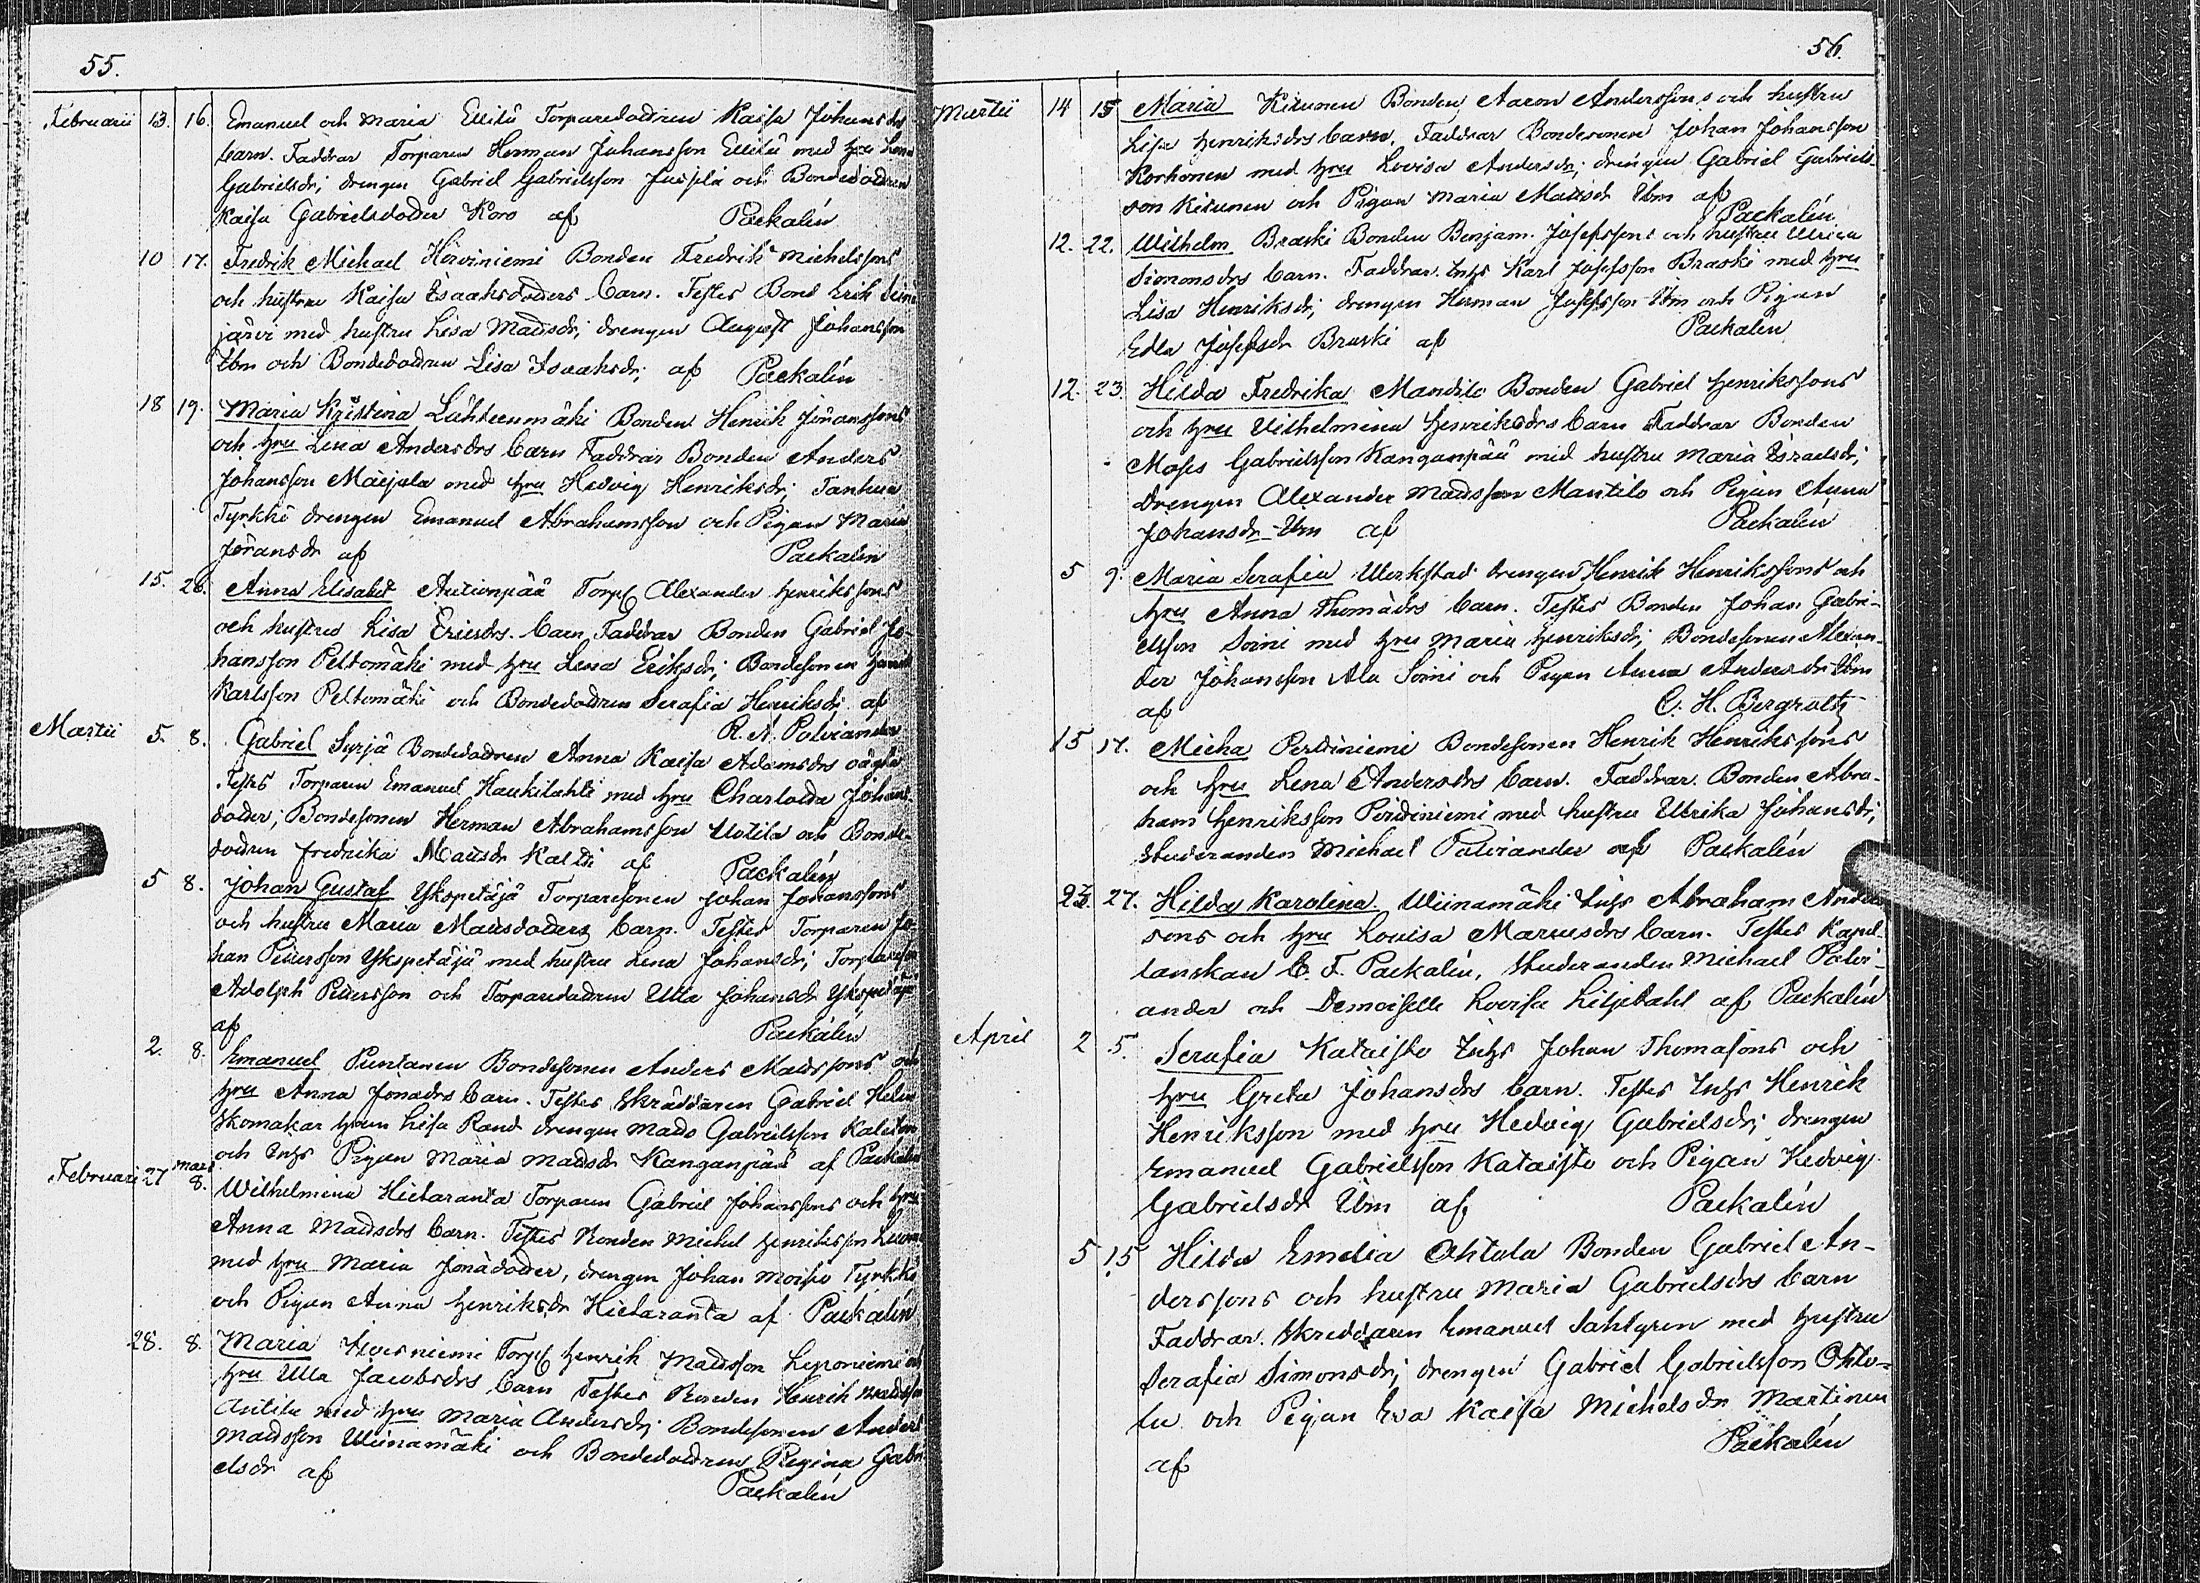 55.
Februarii 13. 16. Emanuel och Maria Ellilä Torparedottren Kaisa Johansdrs
barn. Faddrar Torparen Herman Johansson Ellilä med hru Lena
Gabrielsdr; drengen Gabriel Gabrielsson och Bondedottren
Kaisa Gabrielsdotter Koro af Paekalén
10 17. Fredrik Michael Hirviniemi Bonden Fredrik Michelssons
och hustru Kaisa Isaaksdotters barn. Testes Bond Erik Seina
järvi med hustru Lisa Mattsdr; drengen August Johansson
Ibm och Bondedottren Lisa Isaaksdr; af Paekalén
18 19. Maria Kristina Lähteenmäki Bonden Henrik Jöranssons
och hru Lena Andersdrs barn Faddrar Bonden Anders
Johansson Maijala med hru Hedvig Henriksdr; Tanhua
Tyrkkö drengen Emanuel Abrahamsson och Pigan Maria
Jöransdr af Paekalén
15. 26. Anna Elisabet Antionpää Torp Alexander Henrikssons
och hustrus Lisa Ericsdrs. barn Faddrar Bonden Gabriel Jo-
hansson Peltomäki med hru Lena Eriksdr; Bondesonen
Karlsson Peltomäki och Bondedottren Serafia Henriksdr af
R. N. Polviander
Martii 5. 8. Gabriel Syrjä Bondedottren Anna Kaisa Adamsdrs oägta
Testes Torparen Emanuel Haukilahti med hru Charlotta Johans
dotter; Bondesonen Herman Abrahamsson Uotila och Bonde-
dottren Fredrika Mattsdr Kaldi af Paekalén
5 8. Johan Gustaf Ykspetäjä Torparesonen Johan Johanssons
och hustru Maria Mattsdotters barn. Testes Torparen Jo
han Pettersson Ykspetäjä med hustru Lena Johansdr; Torpareson
Adolph Pettersson och Torparedottren Ulla Johansdr Ykspetäjä
af Paekalén
2. 8. Emanuel Puntanen Bondesonen Anders Mattssons och
hru Anna Jonasdrs barn. Testes Skräddaren Gabriel Helin
Skomakar hrun Lisa Rand drengen Matts Gabrielsson
och Inhs Pigan Maria Mattsdr Kanganpää af Paekalén
Februari 27 Mars 8. Wilhelmina Hietaranta Torparen Gabriel Johanssons och hru
Anna Mattsdrs barn. Testes Bonden Michel Henriksson
med hru Maria Jonadotter, drengen Johan Moisio Tyrkkö
och Pigan Anna Henriksdr Hietaranta af Paekalén
28. 8. Maria Torp Henrik Mattsson och
hru Ulla Jacobsdrs barn Testes Bonden Henrik Mattsson
Antila med hru Maria Andersdr; Bondesonen Anders
Mattsson Wiinamäki och Bondedottren Regina Gabri
elsdr af Paekalén
56.
Martii 14 15 Maria Kitunen Bonden Aaron Anderssons och hustru
Lisa Henriksdrs barn. Faddrar Bondesonen Johan Johansson
Korhonen med hru Lovisa Andersdr; drengen Gabriel Gabriels-
son Kitunen och Pigan Maria Mattsdr Ibm af
Paekalén
12. 22. Wilhelm Braski Bonden Benjam. Josefssons och hustru Ulrica
Simonsdrs barn. Faddrar. Inhs Karl Josefsson Braski med hru
Lisa Henriksdr; drengen Herman Josefsson Ibm och Pigan
Edla Josefsdr Braski af Paekalén
12. 23. Hilda Fredrika Mantila Bonden Gabriel Henrikssons
och hru Vilhelmina Henriksdrs barn Faddrar Bonden
Moses Gabrielsson Kanganpää med hustru Maria Israelsdr;
drengen Alexander Mattsson Mantila och Pigan Anna
Johansdr Ibm af Paekalén
5 9. Maria Serafia Werkstad drengen Henrik Henrikssons och
hru Anna Thomädrs barn. Testes Bonden Johan Gabri-
elsson Soini med hru Maria Henriksdr; Bondesonen Alexan-
der Johansson Ala Soini och Pigan Anna Andersdr Ibm
af C. H. Bergroth
15 17. Micha Perdiniemi Bondesonen Henrik Henrikssons
och hru Lena Andersdrs barn. Faddrar. Bonden Abra-
ham Henriksson Perdiniemi med hustru Ulrika Johansdr;
Studeranden Michael Polviander af Paekalén
23 27. Hilda Karolina. Wiinamäki Inhs Abraham Anders
sons och hru Lovisa Mattsdrs barn. Testes Kapel-
lanskan C. F. Paekalén, Studeranden Michael Polvi-
ander och Demoiselle Lovisa Liljedahl af Paekalén
April 2 5. Serafia Kataisto Inhs Johan Thomasons och
hru Greta Johansdrs barn. Testes Inhs Henrik
Henriksson med hru Hedvig Gabrielsdr; drengen
Emanuel Gabrielsson Kataisto och Pigan Hedvig
Gabrielsdr Ibm af Paekalén
5 15 Hilda Emelia Ohtola Bonden Gabriel An-
derssons och hustru Maria Gabrielsdrs barn
Faddrar. Skreddaren Emanuel Sahlgren med hustru
Serafia Simonsdr; drengen Gabriel Gabrielsson Ohto-
la och Pigan Eva Kaisa Michelsdr Martinen
af Paekalén